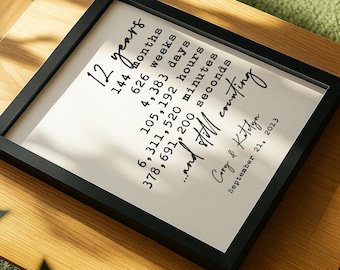 12 years
144 months
626 weeks
4,383 days
105,192 hours
6,311,520 minutes
378,691,200 seconds
...and still counting
September 21, 2013